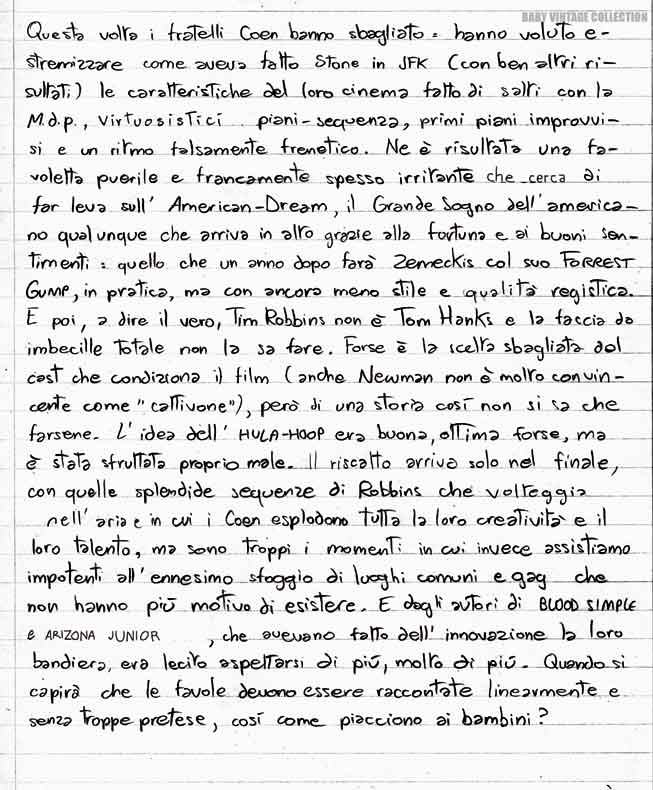 BABY VINTAGE COLLECTION
Questa volta i fratelli Coen hanno sbagliato: hanno voluto e-
stremizzare come aveva fatto Stone in JFK (con ben altri ri-
sultati) le caratteristiche del loro cinema fatto di salti con la
M.d.p., virtuosistici piani-sequenza, primi piani improvvi-
si e un ritmo falsamente frenetico. Ne è risultata una fa-
voletta puerile e francamente spesso irritante che cerca di
far leva sull' American-Dream, il Grande Sogno dell'america-
no qualunque che arriva in alto grazie alla fortuna e ai buoni sen-
timenti: quello che un anno dopo farà Zemeckis col suo FORREST
GUMP, in pratica, ma con ancora meno stile e qualità registica.
E poi, a dire il vero, Tim Robbins non è Tom Hanks e la faccia da
imbecille totale non la sa fare. Forse è la scelta sbagliata del
cast che condiziona il film (anche Newman non è molto convin-
cente come "cattivone"), però di una storia così non si sa che
farsene. L'idea dell' HULA-HOOP era buona, ottima forse, ma
è stata sfruttata proprio male. Il riscatto arriva solo nel finale,
con quelle splendide sequenze di Robbins che volteggia
nell'aria e in cui i Coen esplodono tutta la loro creatività e il
loro talento, ma sono troppi i momenti in cui invece assistiamo
impotenti all'ennesimo sfoggio di luoghi comuni e gag che
non hanno più motivo di esistere. E dagli autori di BLOOD SIMPLE
E ARIZONA JUNIOR , che avevano fatto dell'innovazione la loro
bandiera, era lecito aspettarsi di più, molto di più. Quando si
capirà che le favole devono essere raccontate linearmente e
senza troppe pretese, così come piacciono ai bambini?